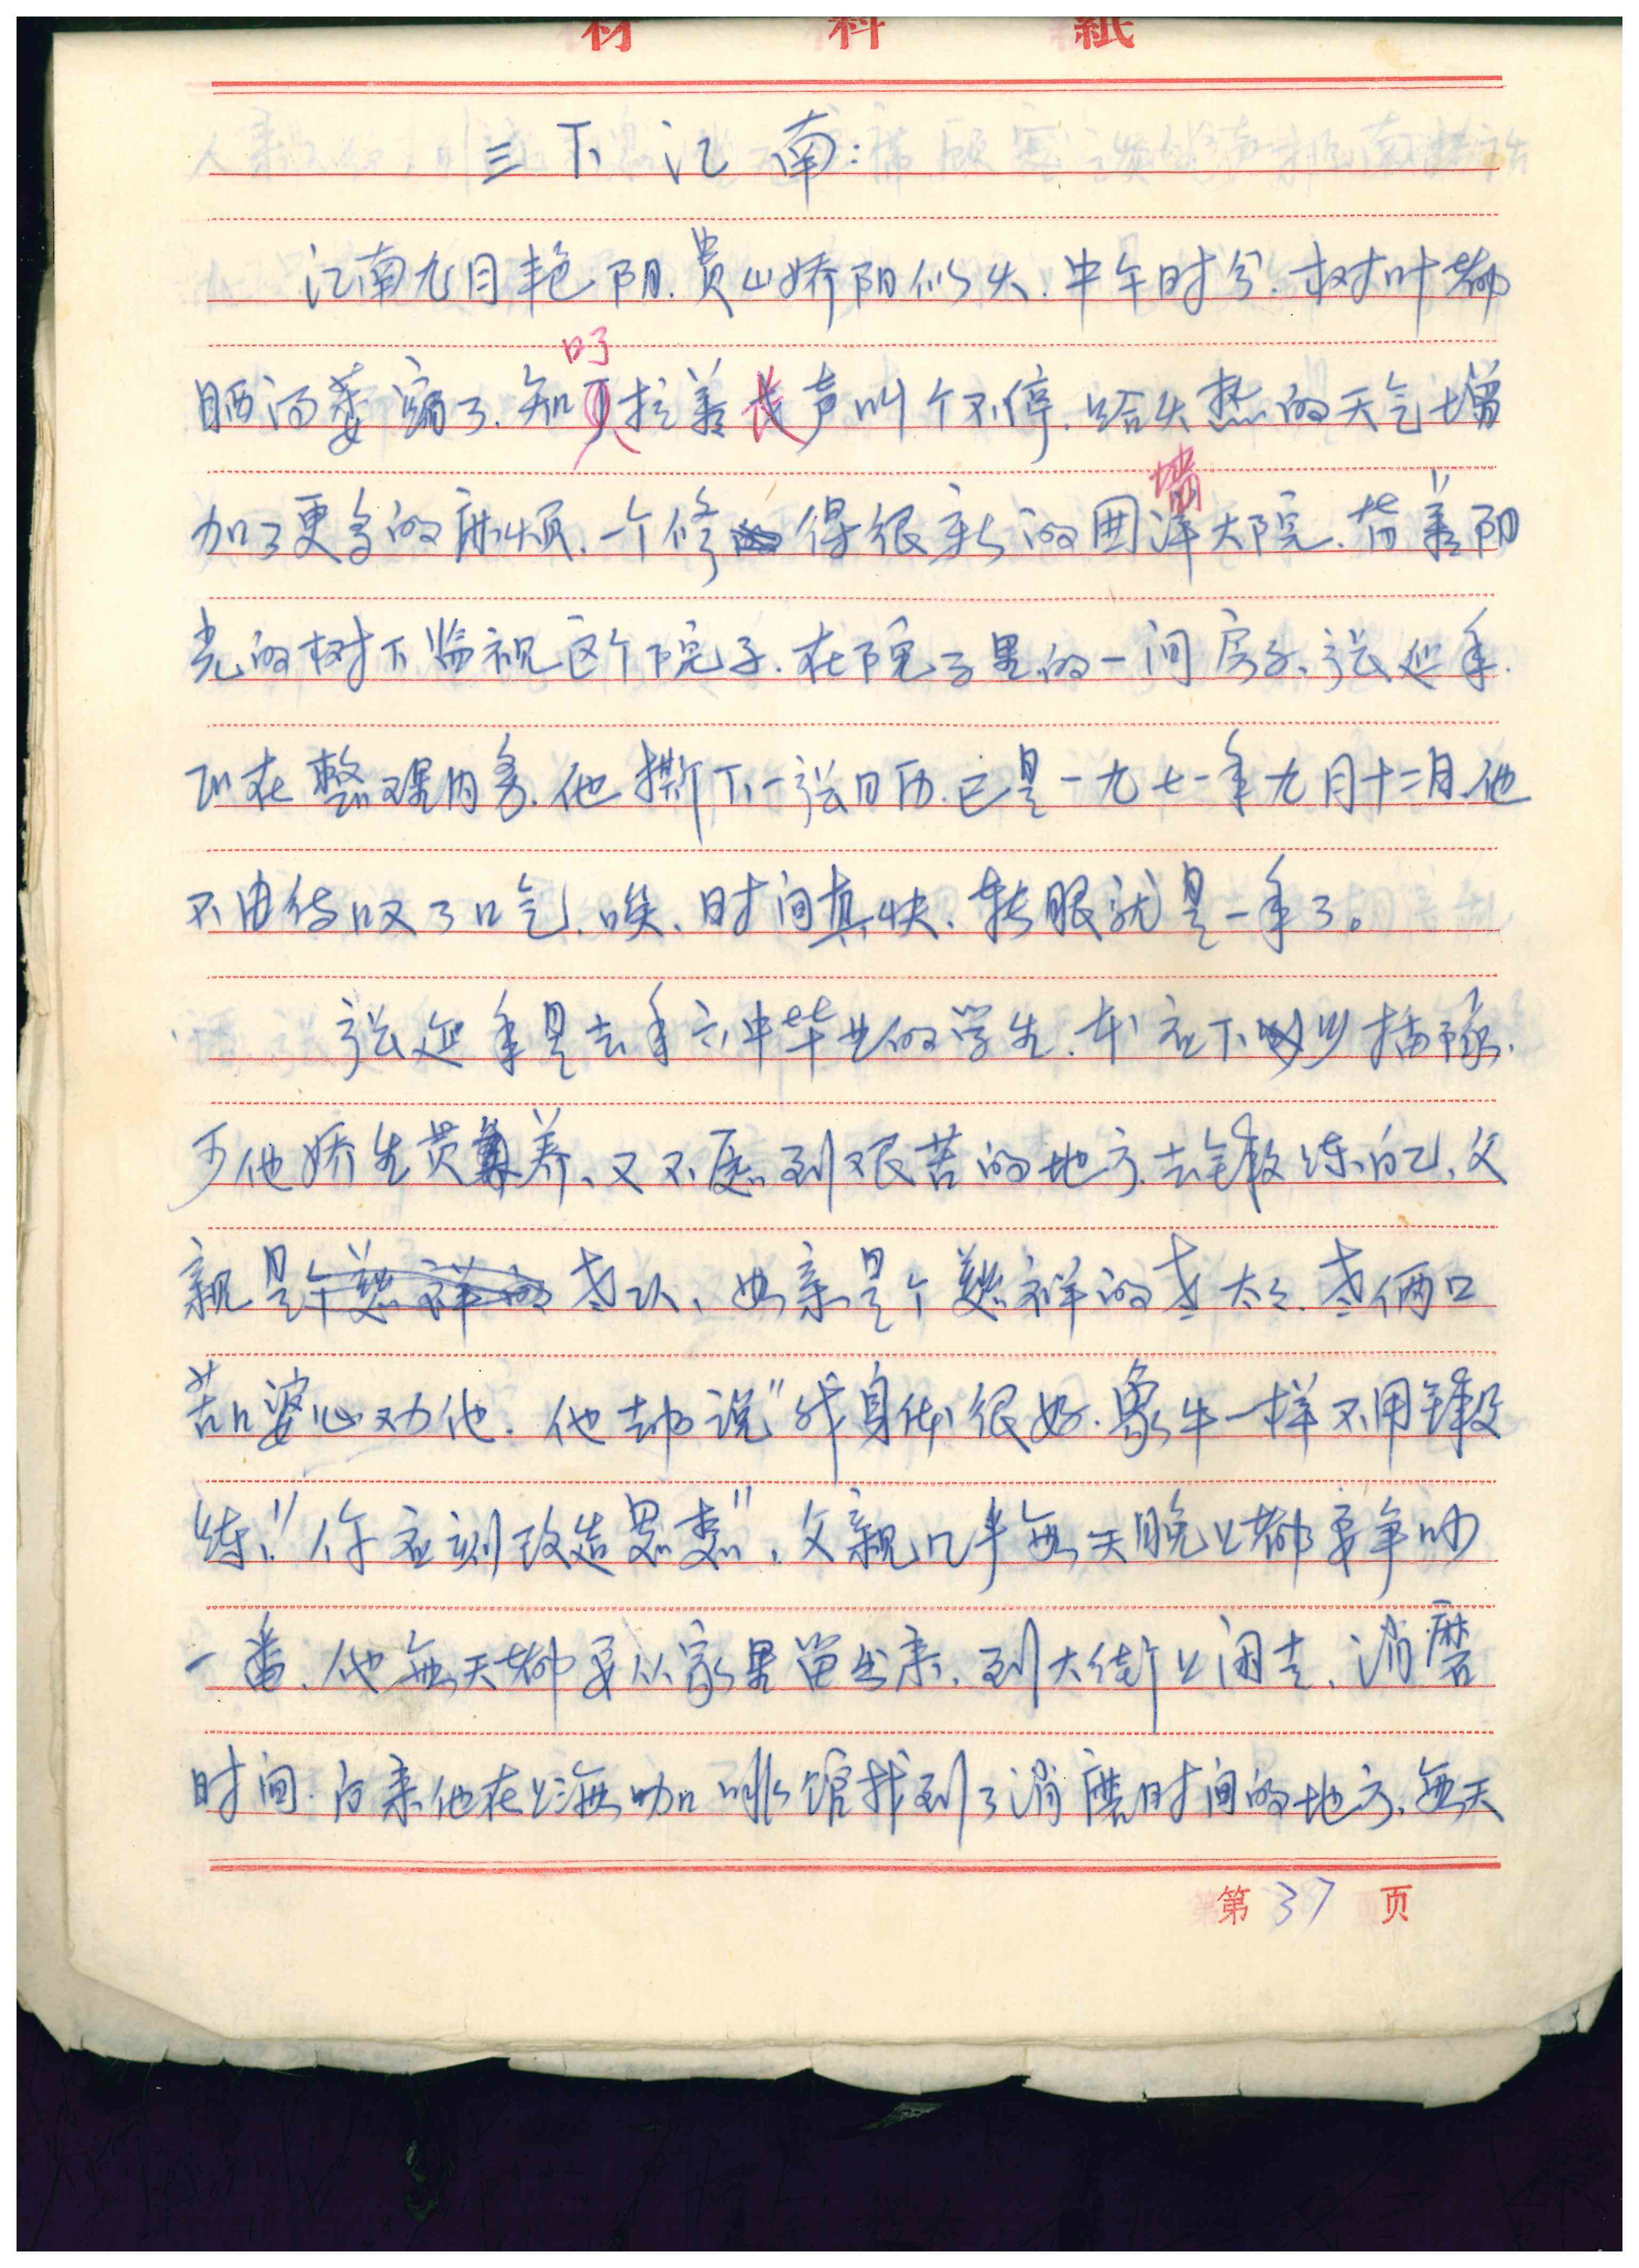 材料紙
三下江南：
江南九月艳阳.贵山娇阳似火.中午时分.树叶都
晒的萎缩了.知叮拉着长声叫个不停.给火热的天气增
加了更多的麻烦.一个修得很新的围墙大院.背着阳
光的树下监视这个院子.在院子里的一间房子、张延年.
正在整理内务.他撕下一张日历.已是一九七一年九月十二日.他
不由给叹了口气.唉、时间真快、转眼就是一年了。
张延年是去年六中毕业的学生.本应下乡插队、
可他娇生贯养、又不愿到艰苦的地方去锻练自己、父
亲是老工人、母亲是个慈祥的老太太.老俩口
苦口婆心劝他.他却说"我身体很好.象牛一样不用锻
练、"你应该改造思想"、父亲几乎每天晚上都要争吵
一番、他每天都要从家里溜出来、到大街上闲走、消磨
时间.后来他在上海咖啡馆找到了消磨时间的地方、每天
第37页